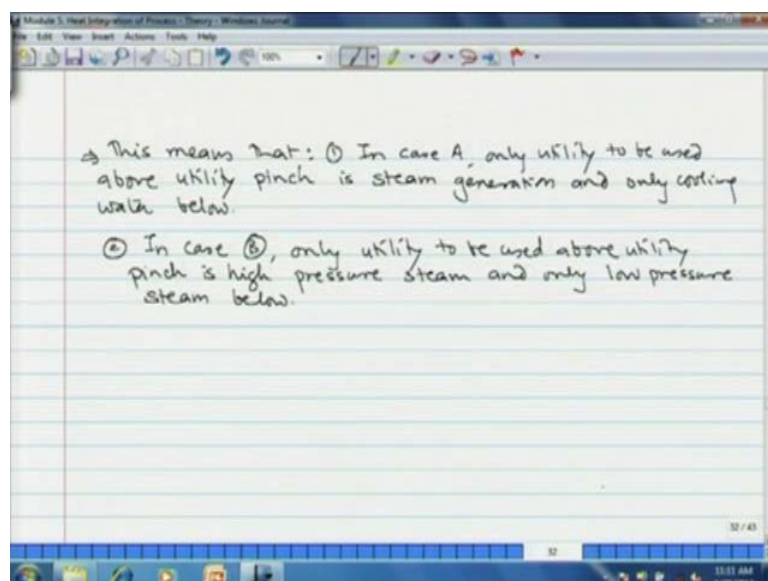 Module 5. Heat Integration of Process - Theory - Windows Journal
File Edit View Insert Actions Tools Help
100%
⇒ This means that: ① In case A, only utility to be used
above utility pinch is steam generation and only cooling
water below.
② In case Ⓑ, only utility to be used above utility
pinch is high pressure steam and only low pressure
steam below.
32 / 43
32
11:11 AM